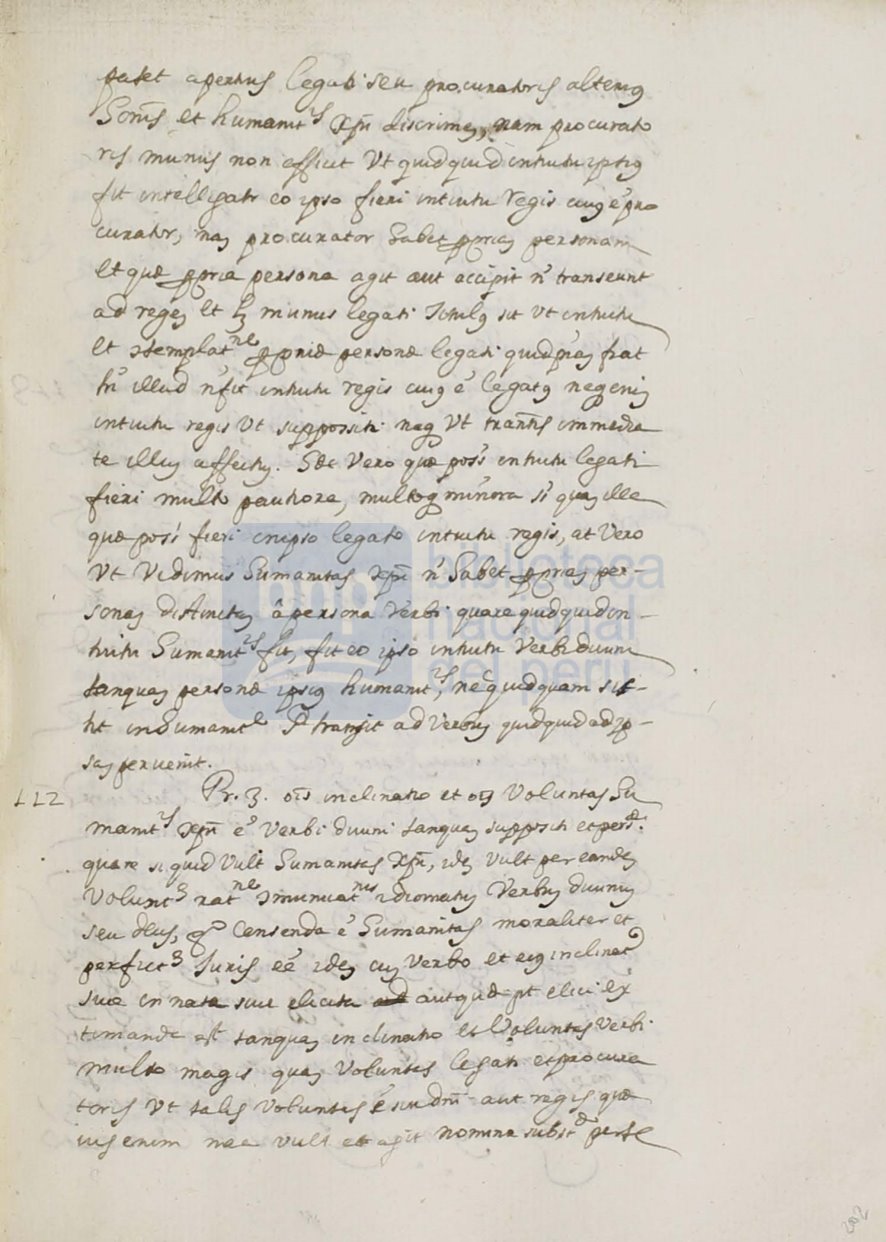 patet apertius legati seu procuratoris alteriq
homīs et humanit.is Xpī discrimen, nam procurato
ris munus non efficit Vt quidquid intuitu ipsiq
fit intelligatr eo ipso fieri intuitu regis cuiq ē pro
curator, nam procurator habet propriam personam
et quæ propria persona agit aut accipit n̄ transeunt
ad regem et munus legati sit Vt intuitu
et propriæ personæ legati quidpiam fiat
tn̄ illud n̄ fit intuitu regis cuiq ē legatq neq enim
intuitu regis Vt suppositi neq Vt immedia
te illum. Sed Vero quæ poss̄ intuitu legati
fieri multo pauciora, multoq minora s̄ quam illa
quæ poss̄ fieri in ipso legato intuitu regis, at Vero
Vt Vidimus humanitas Xpī n̄ habet propriam per-
sonam distinctam â persona Verbi quare quidquid in-
tuitu humanit.is fit, fit eo ipso intuitu Verbi diuini
tanquam personæ ipsiq humanit.is, nec quidquam sis-
tit in humanit.e sed transit ad Verbum quidquid ad ip-
sam peruenit.
112 Pr. 3. oīs inclinatio et oīs Voluntas hu
manit.is Xpī ē Verbi diuini tanquam suppositi et pers.æ
quare si quid Vult humanitas Xpī, idem Vult per eandem
Volunt rat.ne idiomatum Verbum diuinum
seu deus, censenda ē humanitas moraliter et
iuris eē idem cum Verbo et eiq inclinat.o
siue innata siue elicita aut quæ pt elici ex
timanda est tanquam inclinatio et Voluntas Verbi
multo magis quam Voluntas legati et procura
toris Vt talis Voluntas ē sui dni aut regis quæ
enim nec Vult et agit nomine
biblioteca
nacional
del perú
bnp
202